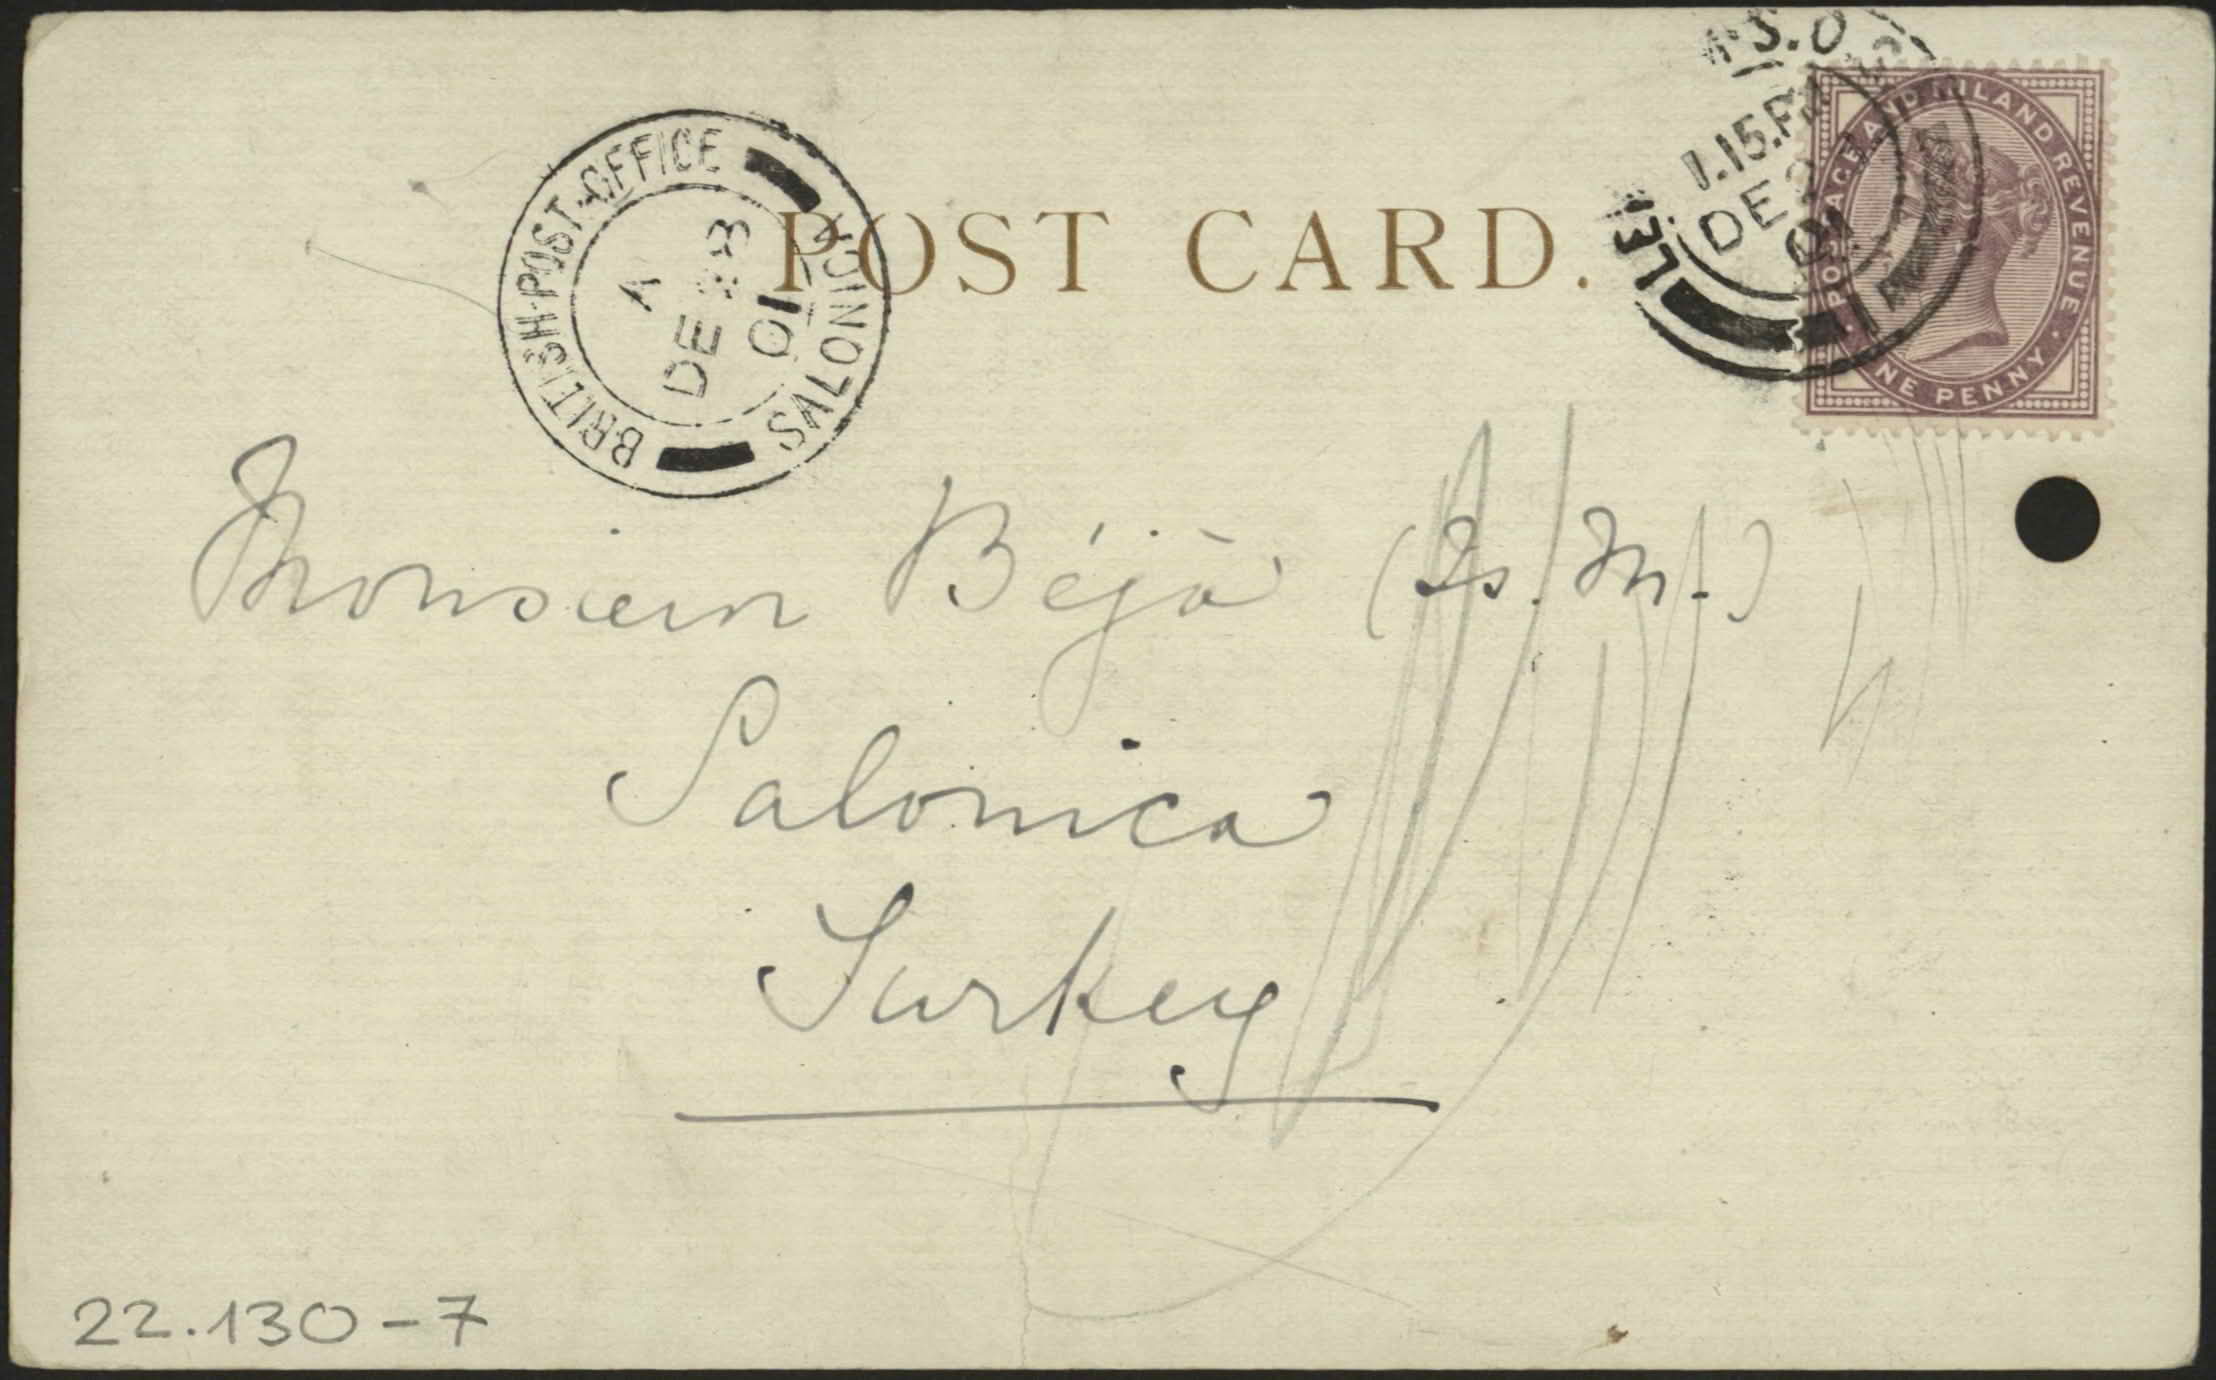 POST CARD.
BRITISH-POST-OFFICE
SALONICA
A
DE 28
01
1.15.PM
DE
01
POSTAGE AND INLAND REVENUE
ONE PENNY
Monsieur Béjà (Is. M.)
Salonica
Turkey
22.130-7